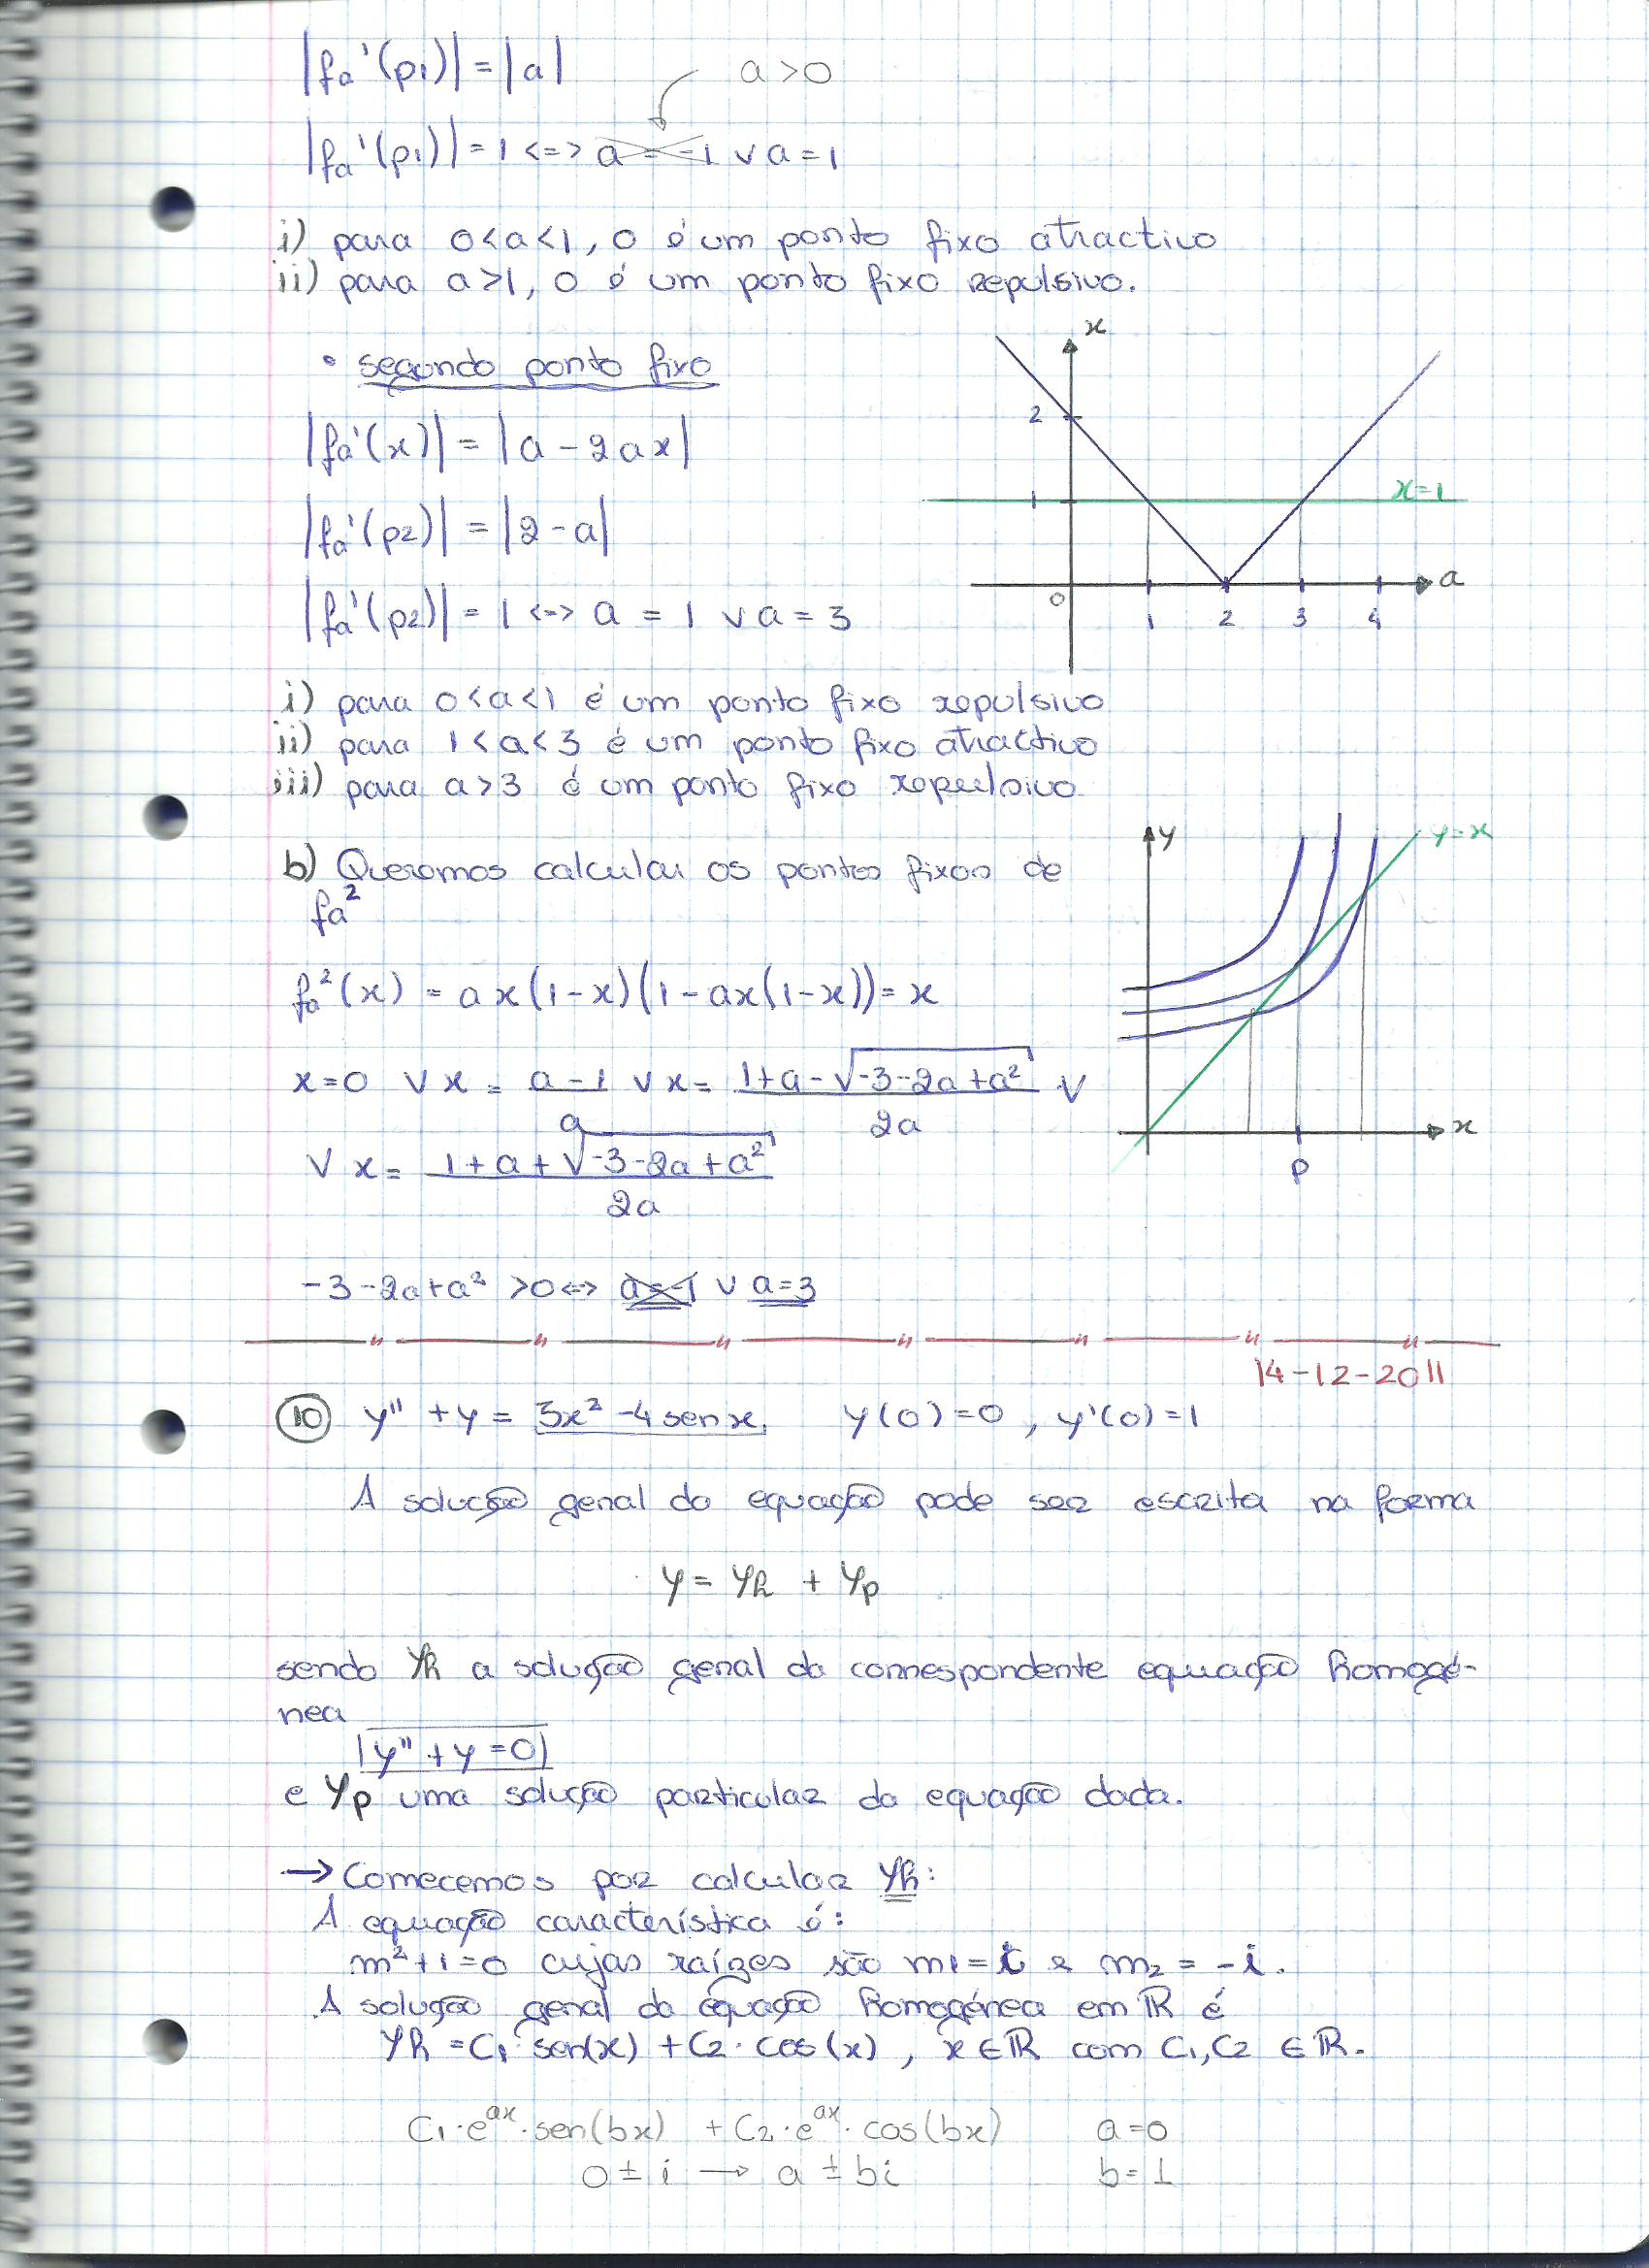 |fa'(p1)| = |a|
a > 0
|fa'(p1)| = 1 <=> a = -1 ∨ a = 1
i) para 0 < a < 1, 0 é um ponto fixo atractivo
ii) para a > 1, 0 é um ponto fixo repulsivo.
• segundo ponto fixo
|fa'(x)| = |a - 2ax|
|fa'(p2)| = |2 - a|
|fa'(p2)| = 1 <=> a = 1 ∨ a = 3
x
2
1
x=1
0
1 2 3 4
a
i) para 0 < a < 1 é um ponto fixo repulsivo
ii) para 1 < a < 3 é um ponto fixo atractivo
iii) para a > 3 é um ponto fixo repulsivo
b) Queremos calcular os pontos fixos de
fa²
y
y=x
x
p
fa²(x) = ax(1-x)(1-ax(1-x)) = x
x=0 ∨ x = (a-1)/a ∨ x = (1+a-√(-3-2a+a²))/2a ∨
∨ x = (1+a+√(-3-2a+a²))/2a
-3-2a+a² >0 <=> a=-1 ∨ a=3
14-12-2011
10 y'' + y = 3x² - 4 sen x, y(0)=0, y'(0)=1
A solução geral da equação pode ser escrita na forma
y = yh + yp
sendo yh a solução geral da correspondente equação homogé-
nea
|y'' + y = 0|
e yp uma solução particular da equação dada.
→ Comecemos por calcular yh:
A equação característica é:
m²+1=0 cujas raízes são m1=i e m2 = -i.
A solução geral da equação homogénea em ℝ é
yh = C1·sen(x) + C2·cos(x), x∈ℝ com C1,C2 ∈ℝ.
C1·e^ax·sen(bx) + C2·e^ax·cos(bx) a=0
0 ± i → a ± bi b=1